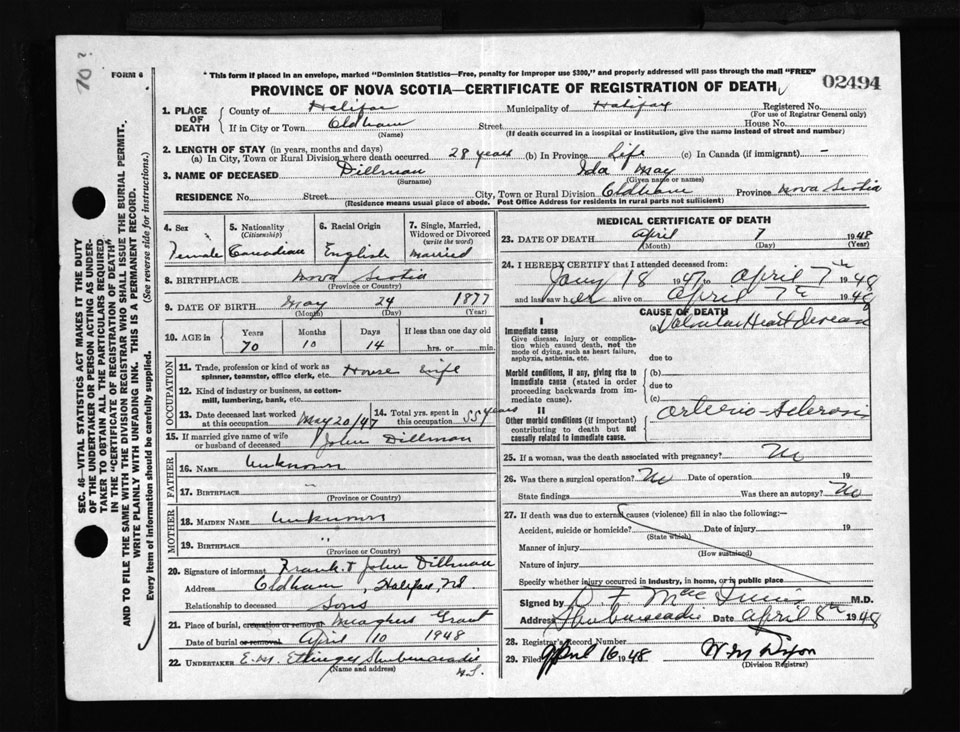 70 ?
FORM 6
" This form if placed in an envelope, marked "Dominion Statistics—Free, penalty for improper use $300," and properly addressed will pass through the mail "FREE"
02494
PROVINCE OF NOVA SCOTIA—CERTIFICATE OF REGISTRATION OF DEATH
SEC. 46—VITAL STATISTICS ACT MAKES IT THE DUTY
OF THE UNDERTAKER OR PERSON ACTING AS UNDER-
TAKER TO OBTAIN ALL THE PARTICULARS REQUIRED
IN THE "CERTIFICATE OF REGISTRATION OF DEATH"
AND TO FILE THE SAME WITH THE DIVISION REGISTRAR WHO SHALL ISSUE THE BURIAL PERMIT.
WRITE PLAINLY WITH UNFADING INK. THIS IS A PERMANENT RECORD.
Every item of information should be carefully supplied. (See reverse side for instructions.)
1. PLACE OF DEATH
County of Halifax Municipality of Halifax Registered No.
(For use of Registrar General only)
If in City or Town Oldham Street House No.
(Name) (If death occurred in a hospital or institution, give the name instead of street and number)
2. LENGTH OF STAY (in years, months and days)
(a) In City, Town or Rural Division where death occurred 28 years (b) In Province Life (c) In Canada (if immigrant) -
3. NAME OF DECEASED Dillman Ida May
(Surname) (Given name or names)
RESIDENCE No. Street City, Town or Rural Division Oldham Province Nova Scotia
(Residence means usual place of abode. Post Office Address for residents in rural parts not sufficient)
4. Sex Female
5. Nationality (Citizenship) Canadian
6. Racial Origin English
7. Single, Married, Widowed or Divorced (write the word) Married
8. BIRTHPLACE Nova Scotia
(Province or Country)
9. DATE OF BIRTH May 24 1877
(Month) (Day) (Year)
10. AGE in Years Months Days If less than one day old
70 10 14 hrs. or min.
OCCUPATION
11. Trade, profession or kind of work as spinner, teamster, office clerk, etc. House wife
12. Kind of industry or business, as cotton-mill, lumbering, bank, etc.
13. Date deceased last worked at this occupation May 20/47
14. Total yrs. spent in this occupation 55 years
15. If married give name of wife or husband of deceased John Dillman
FATHER
16. NAME Unknown
17. BIRTHPLACE "
(Province or Country)
MOTHER
18. MAIDEN NAME Unknown
19. BIRTHPLACE "
(Province or Country)
20. Signature of informant Frank & John Dillman
Address Oldham, Halifax, NS
Relationship to deceased Sons
21. Place of burial, cremation or removal Meaghers Grant
Date of burial or removal April 10 1948
22. UNDERTAKER E. M. Ettinger Shubenacadie
(Name and address) N.S.
MEDICAL CERTIFICATE OF DEATH
23. DATE OF DEATH April 7 1948
(Month) (Day) (Year)
24. I HEREBY CERTIFY that I attended deceased from:
Jany 18 1947 to April 7th 1948
and last saw her alive on April 7th 1948
CAUSE OF DEATH
I
Immediate cause (a) Valvular Heart Disease
Give disease, injury or complication which caused death, not the mode of dying, such as heart failure, asphyxia, asthenia, etc.
due to
Morbid conditions, if any, giving rise to immediate cause (stated in order proceeding backwards from immediate cause). (b)
due to
(c)
II
Other morbid conditions (if important) contributing to death but not causally related to immediate cause. Arterio-Sclerosis
25. If a woman, was the death associated with pregnancy? No
26. Was there a surgical operation? No Date of operation 19
State findings Was there an autopsy? No
27. If death was due to external causes (violence) fill in also the following:—
Accident, suicide or homicide? Date of injury 19
(State which)
Manner of injury
(How sustained)
Nature of injury
Specify whether injury occurred in industry, in home, or in public place
Signed by D F MacInnis M.D.
Address Shubenacadie Date April 8th 1948
28. Registrar's Record Number
29. Filed April 16 1948 W M Dixon
(Division Registrar)